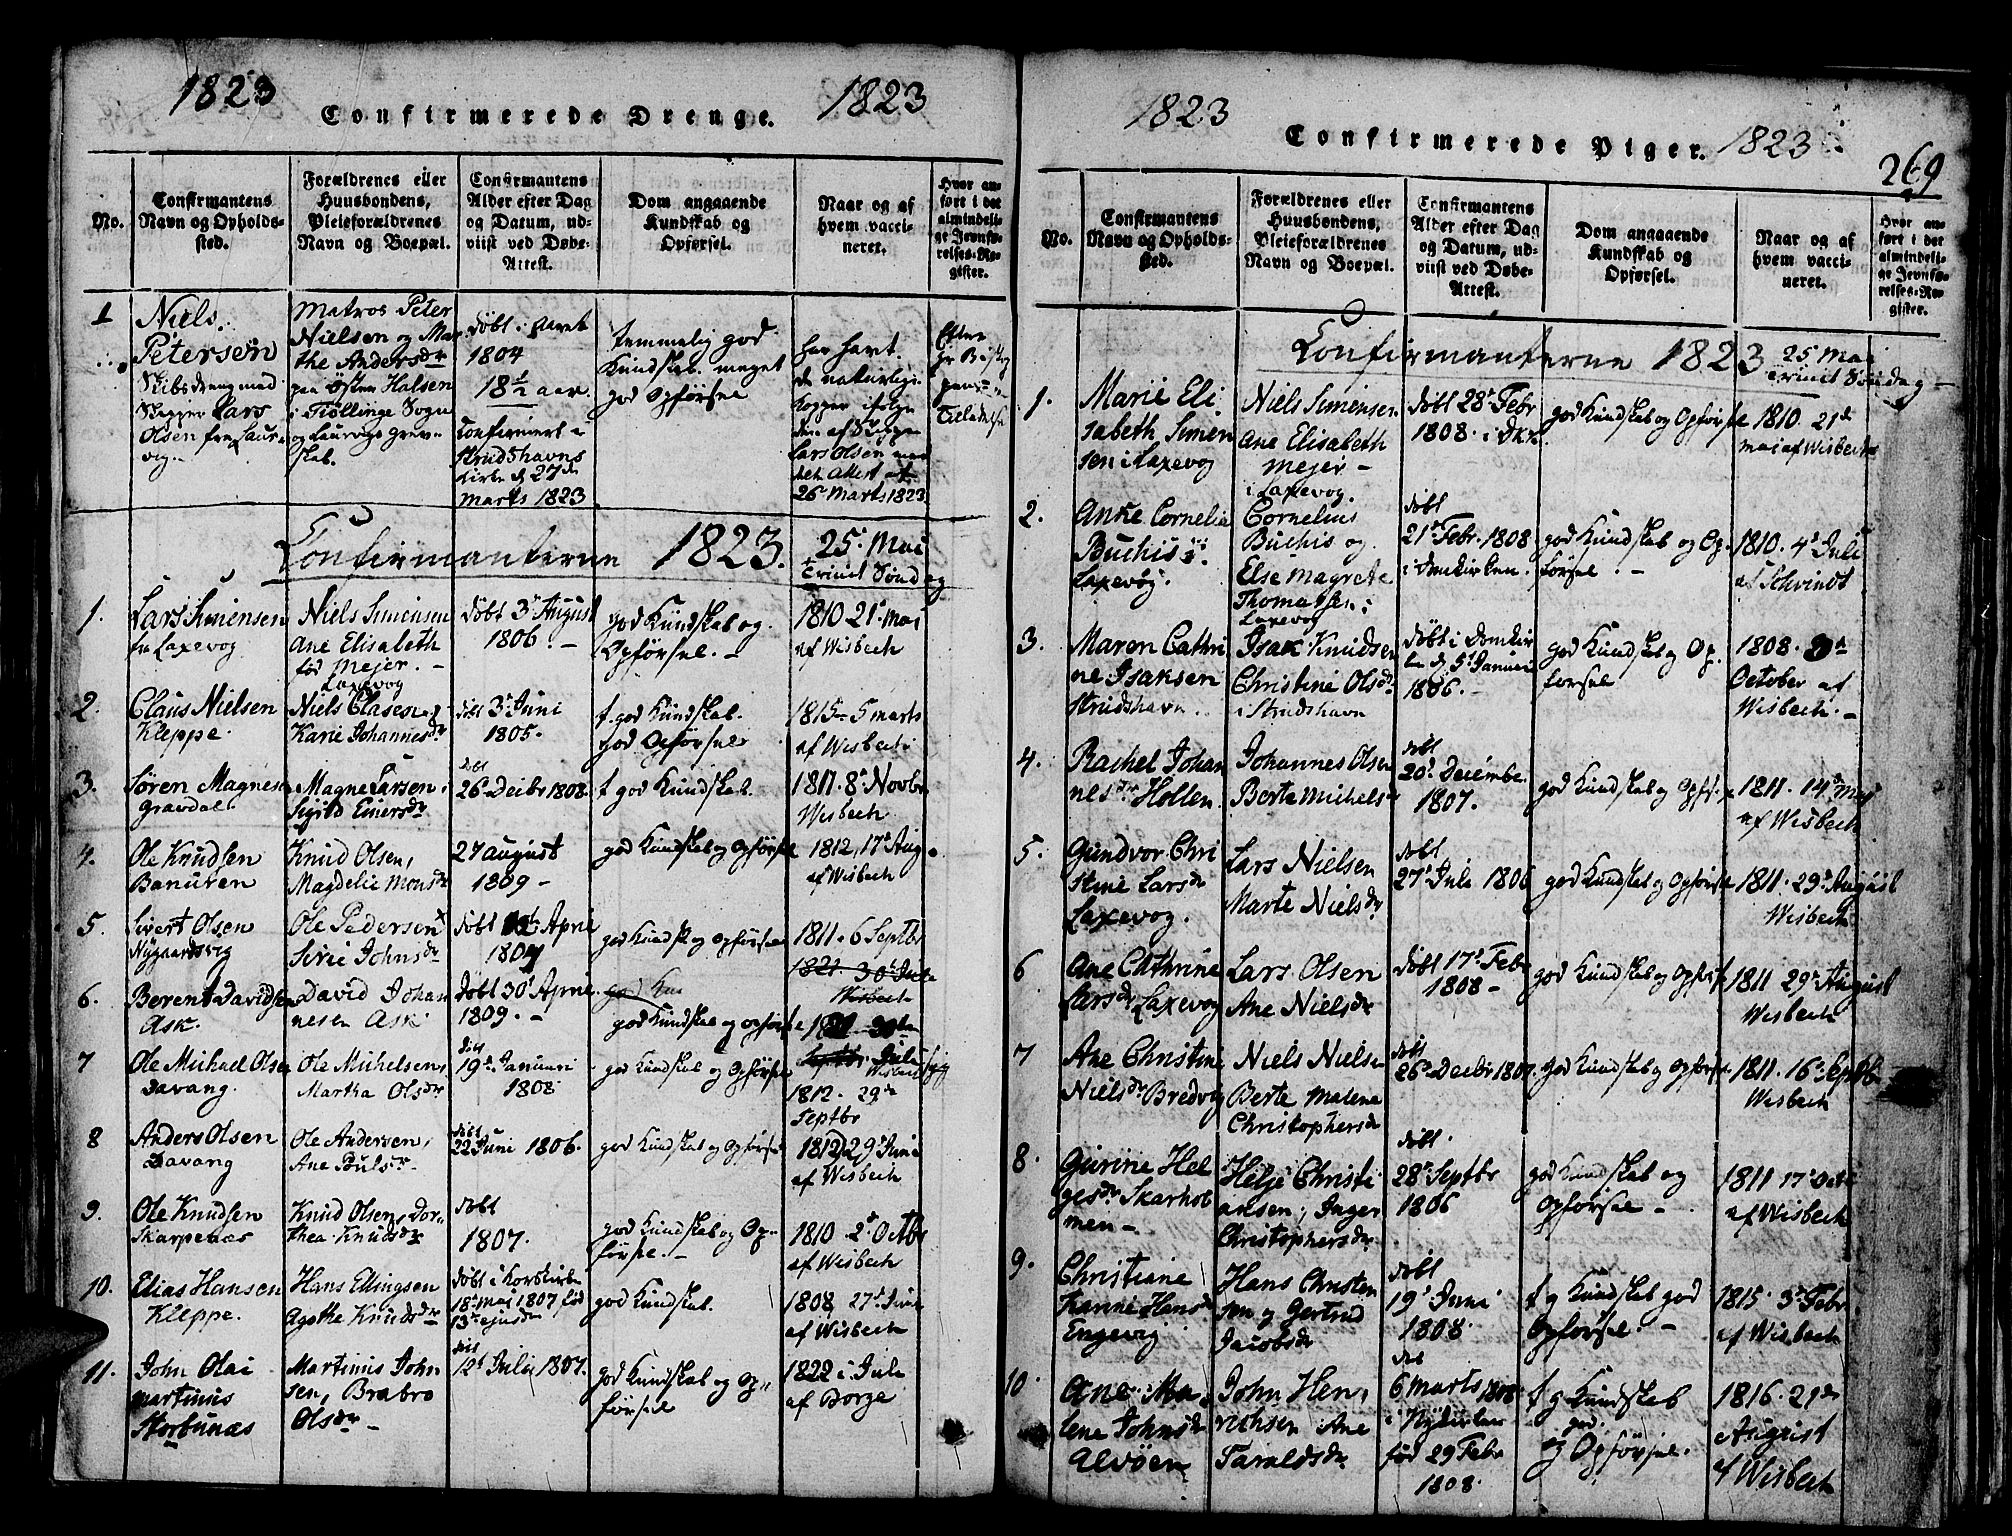 1823
Confirmerede Drenge.
1823
No.
Confirmantens
Navn og Opholds-
sted.
Forældrenes eller
Huusbondens,
Pleieforældrenes
Navn og Boepæl.
Confirmantens
Alder efter Dag
og Datum, ud-
viist ved Døbe-
Attest.
Dom angaaende
Kundskab og
Opførsel.
Naar og af
hvem vacci-
neret.
Hvor an-
ført i det
almindeli-
ge Jevnfø-
relses-Re-
gister.
1
Niels
Petersen
Skibsdreng med
Skipper Lars
Olsen fra Laur-
vig.
Matros Peter
Nielsen og Mar
the Andersdr
paa Østen Halsen
i Tiøllinge Sogn
og Laurvigs grev-
skab.
døbt i aaret
1804
18½ aar
Confirmert i
Strudshavns
Kirke d 27de
Marts 1823
temmelig god
Kundskab. meget
god Opførsel
har havt
de naturlige
Kopper ifølge
Lars Olsen
26 Marts 1823
Efter
Tilladelse
Confirmanterne 1823.
25. Mai
Trinit Søndag
1.
Lars Simensen
fra Laxevog
Niels Simensen
Ane Elisabeth
fød Mejer. -
Laxevog
døbt 3 August
1806. -
god Kundskab og
Opførsel. -
1810 21. mai
af Wisbech
2.
Claus Nielsen
Kleppe.
Niels Clasen og
Karie Johannesdr
døbt 3 Juni
1805.
t. god Kundskab.
god Opførsel
1815 5 marts
af Wisbech
3.
Søren Magnesen
Gravdal
Magne Larsen,
Sigrid Einersdr
døbt
26 Decbr 1808.
t god Kundskab.
1811. 8 Novbr
Wisbech
4.
Ole Knudsen
Banuren
Knud Olsen,
Magdelie Monsdr
27 august
1809 -
god Kundskab og Opførsel
1812, 17 Aug.
af Wisbech
5.
Sivert Olsen
Nygaardsvig
Ole Pedersen
Sirie Johnsdr
døbt April
1807
god Kundsk og Opførsel
1811. 6 Septbr
1821 30 Juli
Wisbech
6.
Berent Davidsen
Ask.
David Johan
nesen Ask
døbt 30 April
1809. -
god Kundskab og opførsel
7
Ole Michael Olsen
Davang.
Ole Michelsen,
Martha Olsdr
19de Januari
1808.
god Kundskab og Opførsel
1812. 29de
Septbr
8
Anders Olsen
Davang
Ole Andersen,
Ane Pulsdr
døbt
22 Juni 1806.
god Kundskab og Opførsel
1812 29 Juni
af Wisbech
9.
Ole Knudsen
Skarpenæs
Knud Olsen, Dor-
thea Knudsdr
døbt
1807.
god Kundskab og Op-
førsel. -
1810. 2 Octbr
af Wisbech
10.
Elias Hansen
Kleppe.
Hans Ellingsen
Agathe Knudsdr
døbt i Korskirke
18 mai 1807 fød
13 ejusdm
god Kundskab.
1808 27 Juni
af Wisbech
11.
John Olai
martinus
Storbunæs
Martinus John
sen, Brabro
Olsdr -
døbt
12 Juli 1807.
god Kundskab og Op-
førsel
1822 i Juli
af Borge
1823
Confirmerede Piger.
1823
269
No.
Confirmantens
Navn og Opholds-
sted.
Forældrenes eller
Huusbondens,
Pleieforældrenes
Navn og Boepæl.
Confirmantens
Alder efter Dag
og Datum, ud-
viist ved Døbe-
Attest.
Dom angaaende
Kundskab og
Opførsel.
Naar og af
hvem vacci-
neret.
Hvor an-
ført i det
almindeli-
ge Jevnfø-
relses-Re-
gister.
Confirmanterne 1823
25 Mai
Trinit Søndag
1.
Marie Eli
sabeth Simen
sen i Laxevog
Niels Simensen
Ane Elisabeth
Mejer -
i Laxevog.
døbt 28 Febr
1808. i Dk.
god Kundskab og Opførsel
1810 21de
mai af Wisbech
2.
Anne Cornelia
Buchis i
Laxevog.
Cornelius
Buchis og
Else Magrete
Thomassen i
Laxevog
døbt
21 Febr. 1808
i Domkirken.
god Kundskab og Op-
førsel. -
1810. 4 Juli
af Schvindt
3.
Maren Cathri
ne Isaksen
Strudshavn
Isak Knudsen
Christine Olsdr
i Strudshavn
døbt i Domkir
ken d. 5 Januari
1806. -
god Kundskab og Op.
førsel
1808.
October af
Wisbech. -
4.
Rachel Johan
nesdr Hollen
Johannes Olsen
Berte Michelsdr
døbt
20 Decembe.
1807.
god Kundskab og Opførsel
1811. 14 Mai
af Wisbech
5.
Gundvor Chri
stine Larsdr
Laxevog.
Lars Nielsen
Marte Nielsdr
døbt
27 Juli 1806
god Kundskab og Opførsel
1811. 29 August
Wisbech
6
Ane Cathrine
Larsdr Laxevog
Lars Olsen
Ane Nielsdr
døbt 17 Febr
1808 -
god Kundskab og Opførsel
1811 29 August
Wisbech
7
Ane Christine
Nielsdr Bredvig
Niels Nielsen
Berte Malena
Christophersdr
døbt
26 Decbr 1807.
god Kundskab og Opførsel
1811. 16 Septb
Wisbech
8.
Gurine Hel
gesdr Skarhol
men -
Helje Christi
ansen, Inger
Christophersdr
døbt
28 Septbr
1806
god Kundskab og
Opførsel -
1811 17 Octb
af Wisbech
9.
Christiane
Hanne Hansdr
Engevig
Hans Christen
sen og Gertrud
Jacobsdr
døbt
19 Juni
1808.
t g Kundskab god
Opførsel. -
1815. 3 Febr.
af Wisbech
10.
Ane Ma
lene Johnsdr
Alvøen
John Hen
richsen Ane
Taraldsdr
døbt
6 marts 1808
i Nykirken
fød 29 Febr
1808.
t g Kundskab
god
og Opførsel.
1816. 21de
August
af Wisbech